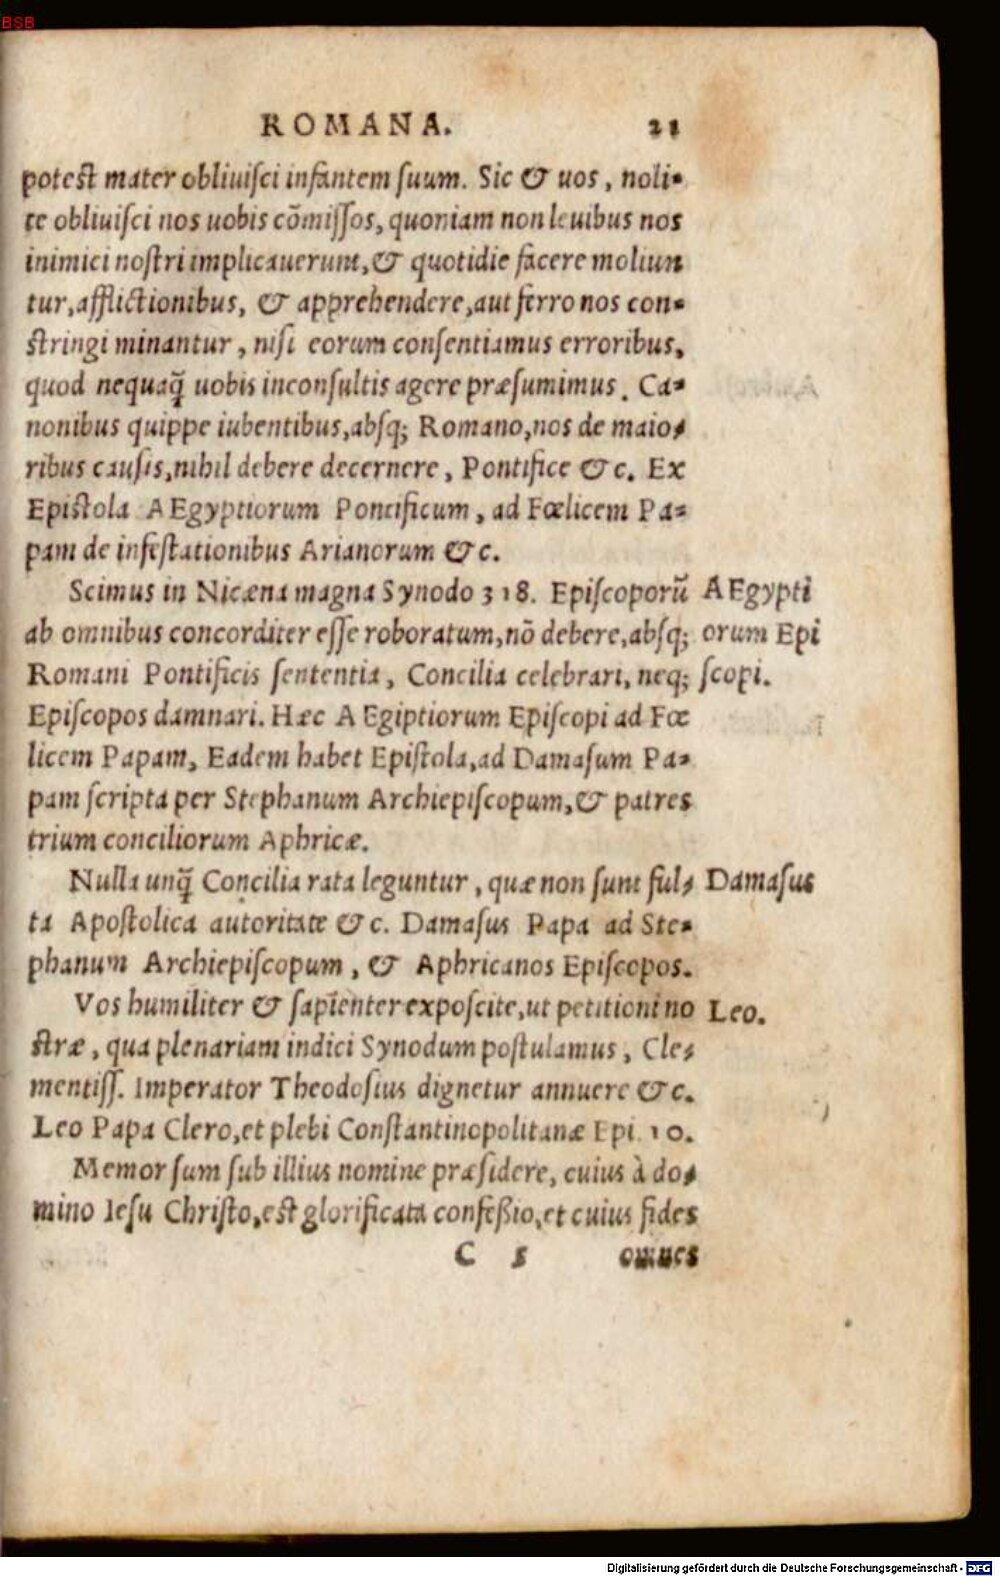 BSB
ROMANA. 21
potest mater obliuisci infantem suum. Sic & uos, noli-
te obliuisci nos uobis cõmissos, quoniam non leuibus nos
inimici nostri implicauerunt, & quotidie facere moliun
tur, afflictionibus, & apprehendere, aut ferro nos con-
stringi minantur, nisi eorum consentiamus erroribus,
quod nequaq̃ uobis inconsultis agere præsumimus. Ca-
nonibus quippe iubentibus, absq; Romano, nos de maio-
ribus causis, nihil debere decernere, Pontifice &c. Ex
Epistola AEgyptiorum Pontificum, ad Fœlicem Pa-
pam de infestationibus Arianorum &c.
Scimus in Nicæna magna Synodo 318. Episcoporũ
ab omnibus concorditer esse roboratum, nõ debere, absq;
Romani Pontificis sententia, Concilia celebrari, neq;
Episcopos damnari. Hæc AEgiptiorum Episcopi ad Fœ
licem Papam, Eadem habet Epistola, ad Damasum Pa-
pam scripta per Stephanum Archiepiscopum, & patres
trium conciliorum Aphricæ.
AEgypti
orum Epi
scopi.
Nulla unq̃ Concilia rata leguntur, quæ non sunt ful-
ta Apostolica autoritate &c. Damasus Papa ad Ste-
phanum Archiepiscopum, & Aphricanos Episcopos.
Damasus
Vos humiliter & sapienter exposcite, ut petitioni no
stræ, qua plenariam indici Synodum postulamus, Cle-
mentiss. Imperator Theodosius dignetur annuere &c.
Leo Papa Clero, et plebi Constantinopolitanæ Epi. 10.
Leo.
Memor sum sub illius nomine præsidere, cuius à do-
mino Iesu Christo, est glorificata confeßio, et cuius fides
C 5 omnes
Digitalisierung gefördert durch die Deutsche Forschungsgemeinschaft - DFG